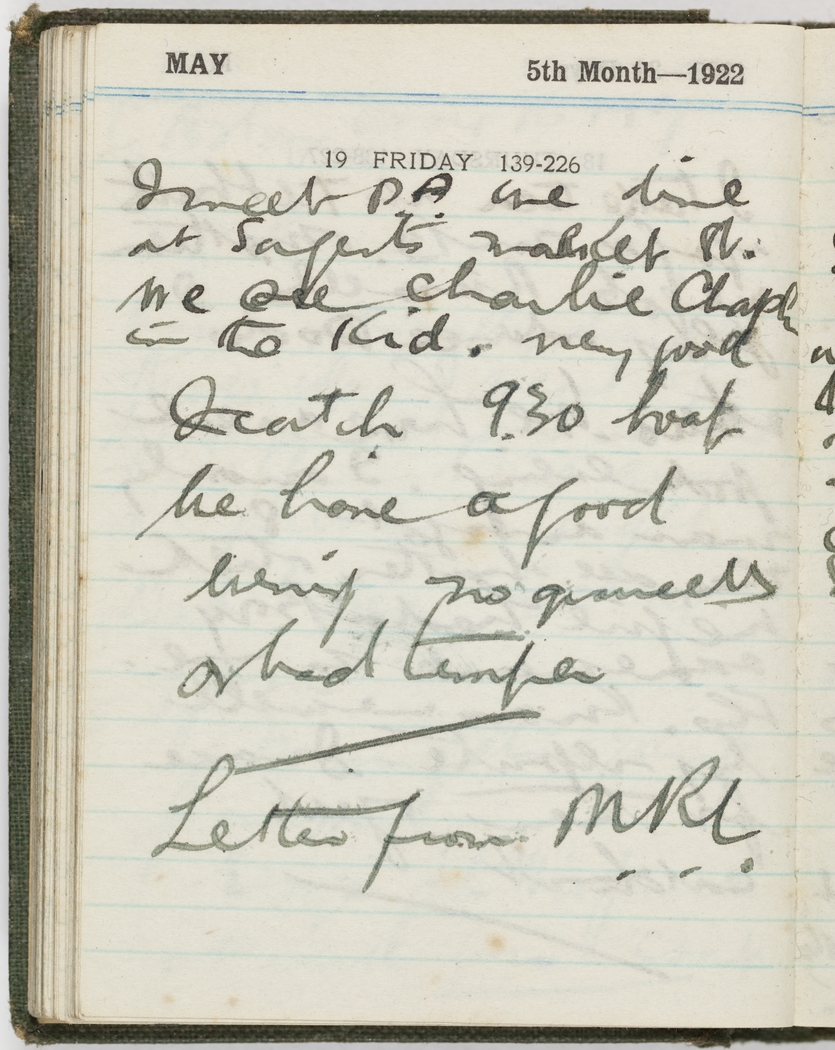 MAY 5th Month—1922
19 FRIDAY 139-226
I meet D.A. we dine
at Sargents market St.
We see Charlie Chapl
in the Kid. very good
I catch 9.30 boat
We have a good
evening no quarrells
or bad temper
Letter from M.R.L.